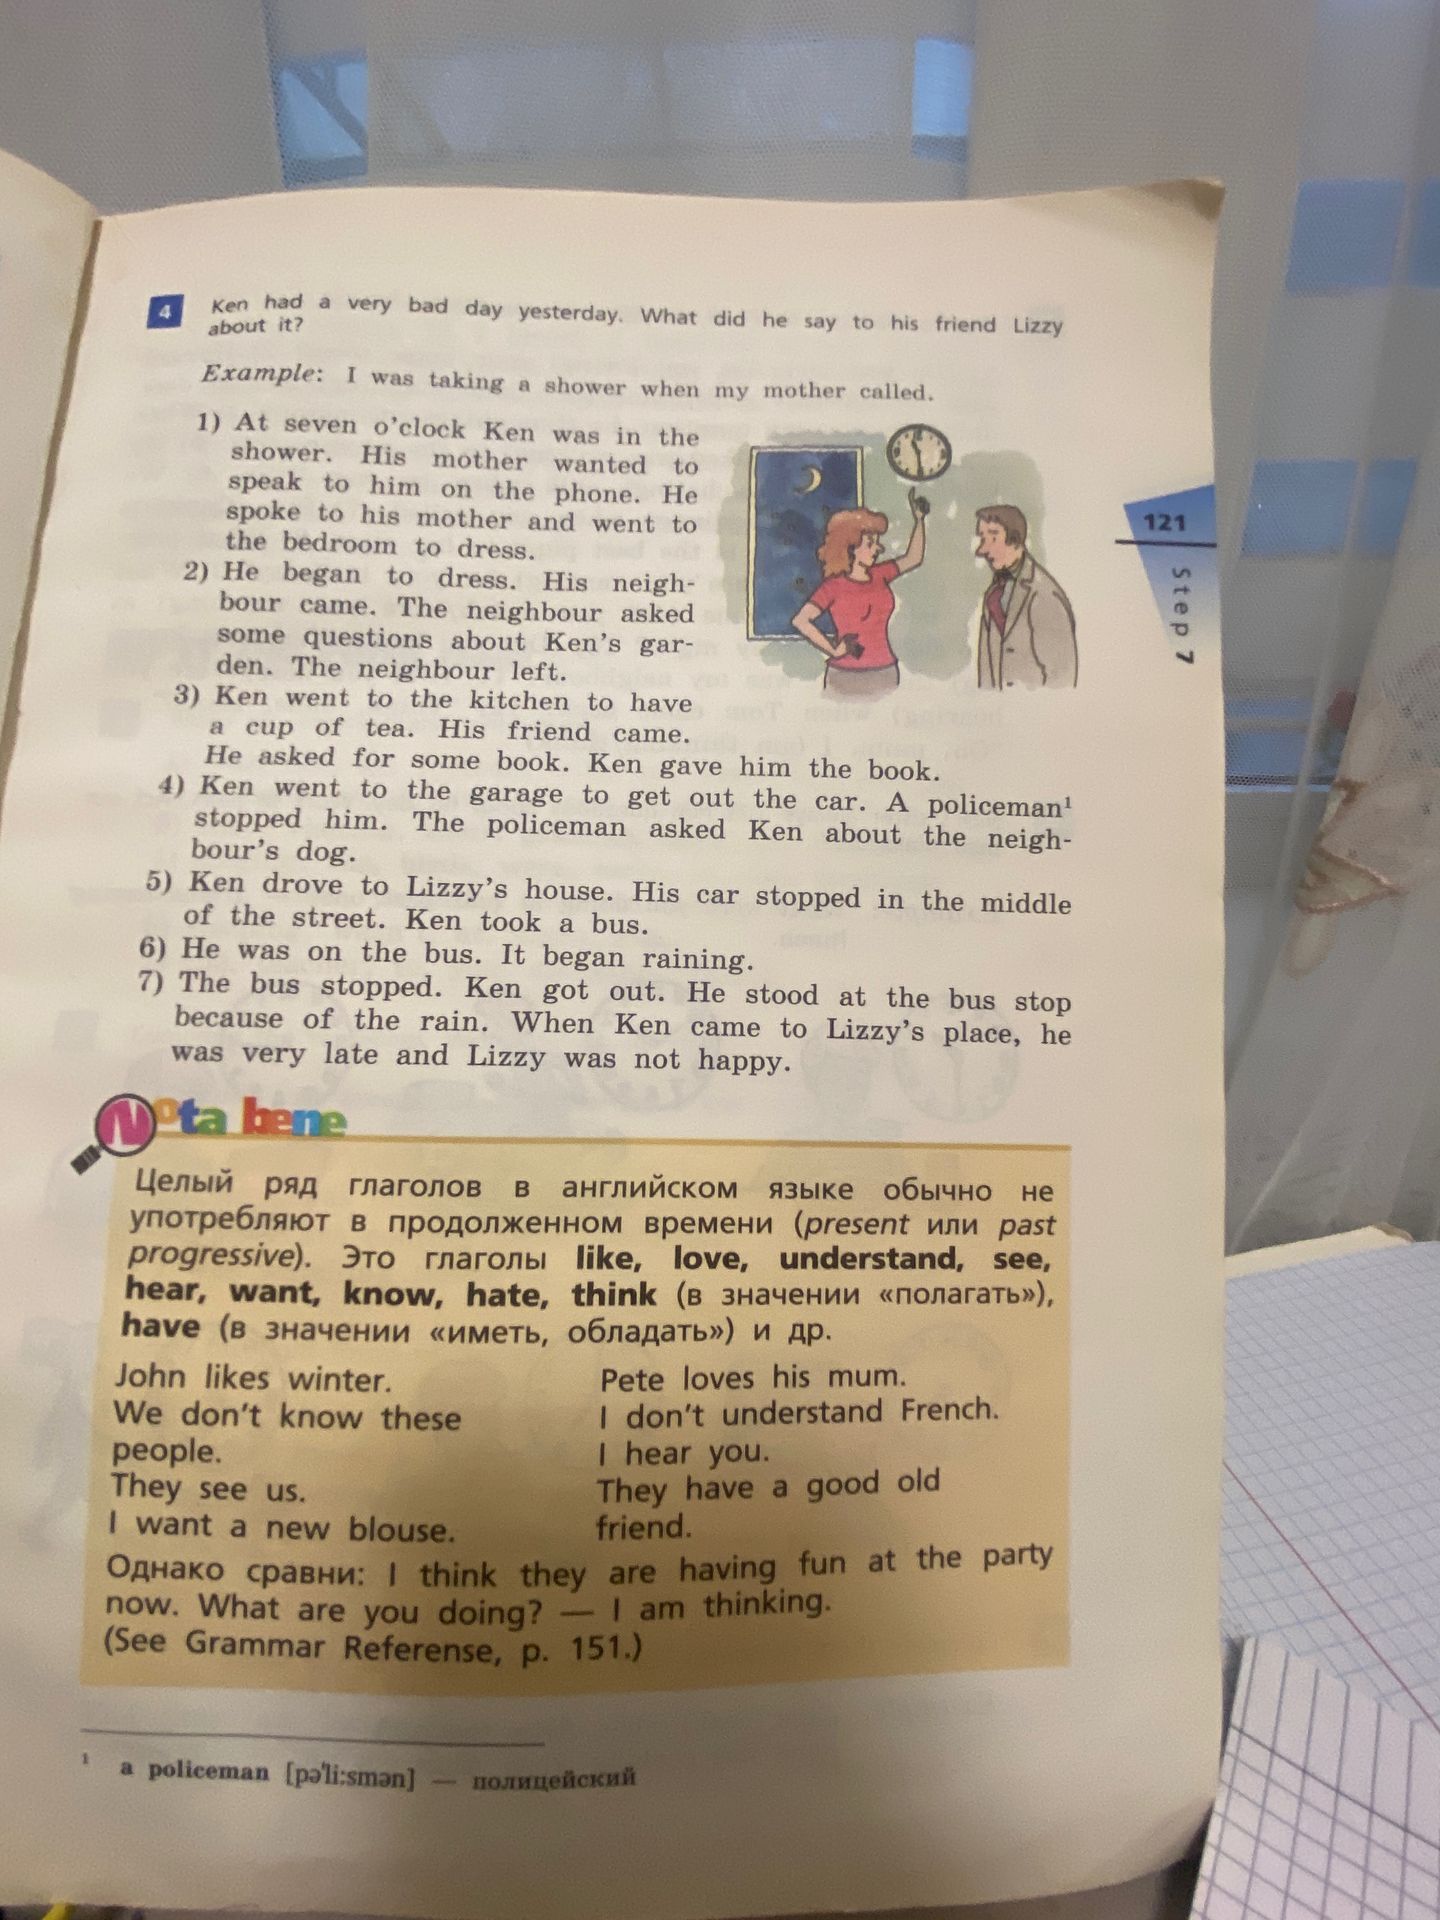 4 Ken had a very bad day yesterday. What did he say to his friend Lizzy
about it?
Example: I was taking a shower when my mother called.
1) At seven o'clock Ken was in the
shower. His mother wanted to
speak to him on the phone. He
spoke to his mother and went to
the bedroom to dress.
2) He began to dress. His neigh-
bour came. The neighbour asked
some questions about Ken's gar-
den. The neighbour left.
3) Ken went to the kitchen to have
a cup of tea. His friend came.
He asked for some book. Ken gave him the book.
4) Ken went to the garage to get out the car. A policeman¹
stopped him. The policeman asked Ken about the neigh-
bour's dog.
5) Ken drove to Lizzy's house. His car stopped in the middle
of the street. Ken took a bus.
6) He was on the bus. It began raining.
7) The bus stopped. Ken got out. He stood at the bus stop
because of the rain. When Ken came to Lizzy's place, he
was very late and Lizzy was not happy.
121
Step 7
Nota bene
Целый ряд глаголов в английском языке обычно не
употребляют в продолженном времени (present или past
progressive). Это глаголы like, love, understand, see,
hear, want, know, hate, think (в значении «полагать»),
have (в значении «иметь, обладать») и др.
John likes winter.
We don't know these
people.
They see us.
I want a new blouse.
Pete loves his mum.
I don't understand French.
I hear you.
They have a good old
friend.
Однако сравни: I think they are having fun at the party
now. What are you doing? — I am thinking.
(See Grammar Referense, p. 151.)
¹ a policeman [pə'li:smən] — полицейский